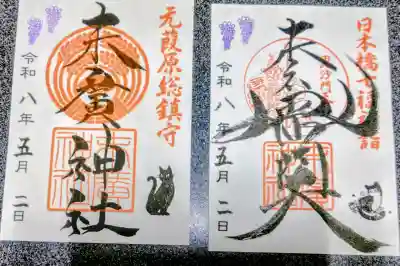 元葭原総鎮守
末廣神社
令和八年五月二日
日本橋七福神詣
末廣
毘沙門天
令和八年五月二日